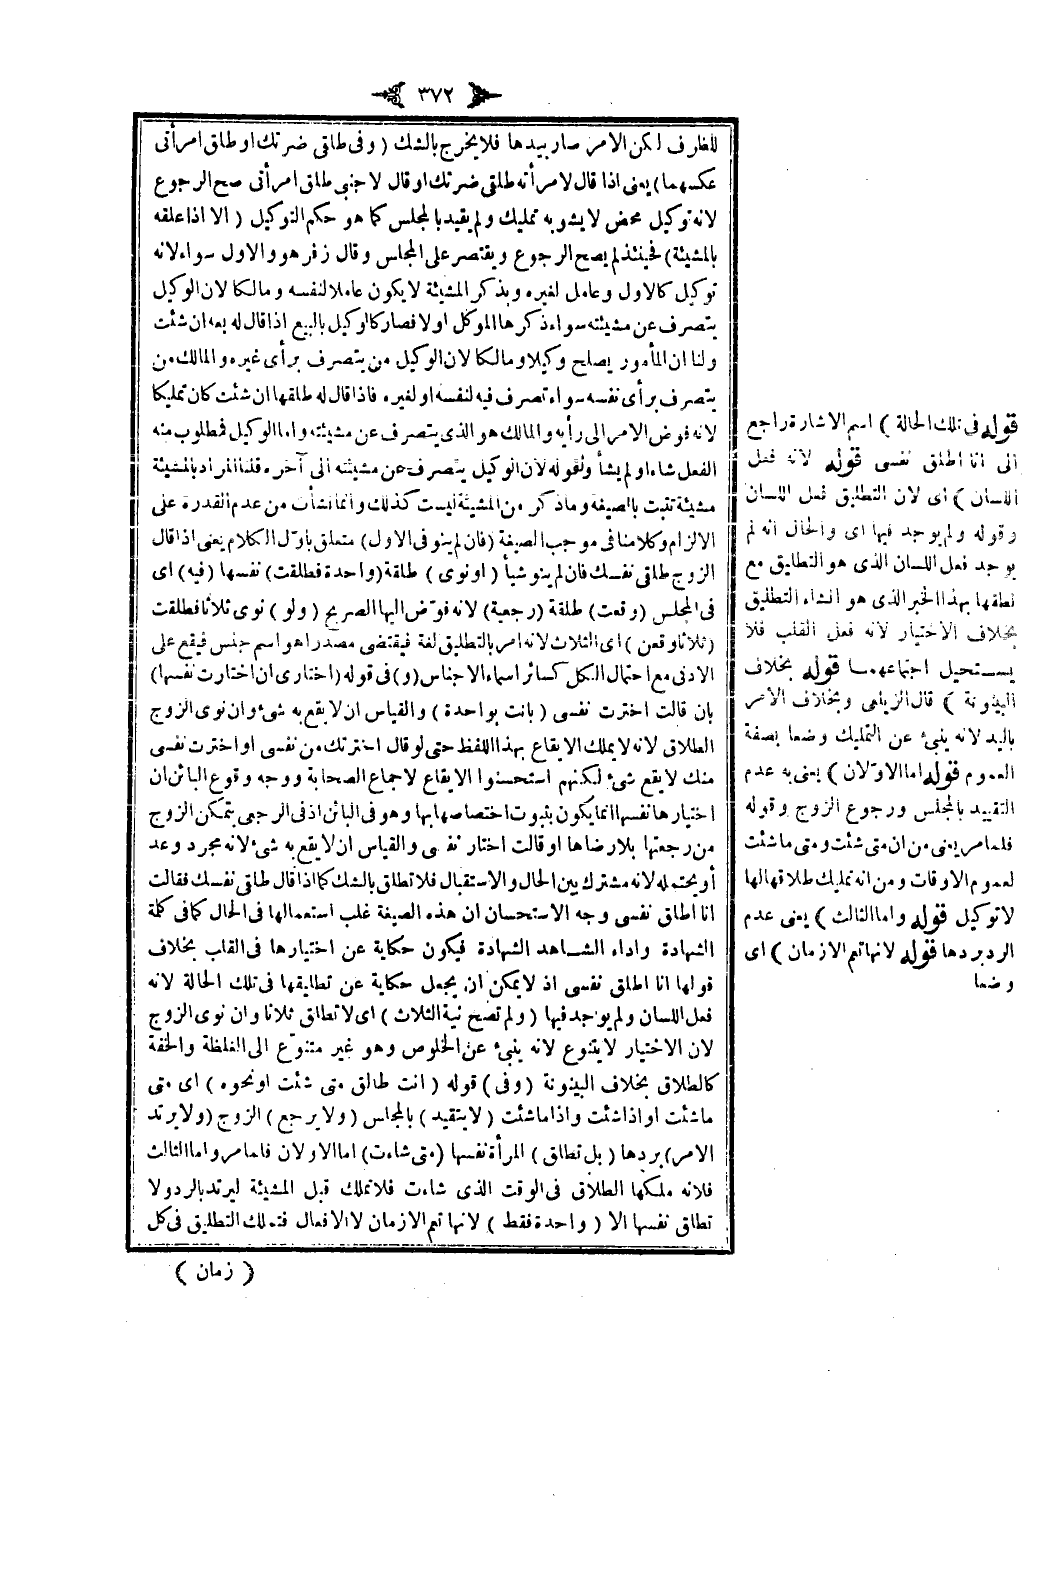 ٣٧٢
للظرف لكن الامر صار بيدها فلا يخرج بالشك ( وفى طلقى ضرتك او طلق امرأتى
عكسهما) يعنى اذا قال لامرأته طلقى ضرتك او قال لاجنبى طلق امرأتى صح الرجوع
لانه توكيل محض لا يشوبه تمليك ولم يقيد بالمجلس كما هو حكم التوكيل ( الا اذا علقه
بالمشيئة) فحينئذ لم يصح الرجوع ويقتصر على المجلس وقال زفر هو والاول سواء لانه
توكيل كالاول وعامل لغيره وبذكر المشيئة لا يكون عاملا لنفسه ومالكا لان الوكيل
يتصرف عن مشيئته سواء ذكرها الموكل اولا فصار كالوكيل بالبيع اذا قال له بعه ان شئت
ولنا ان المأمور يصلح وكيلا ومالكا لان الوكيل من يتصرف برأى غيره والمالك من
يتصرف برأى نفسه سواء تصرف فيه لنفسه او لغيره فاذا قال له طلقها ان شئت كان تمليكا
لانه فوض الامر الى رأيه والمالك هو الذى يتصرف عن مشيئته واما الوكيل فمطلوب منه
الفعل شاء او لم يشأ ولقوله لان الوكيل يتصرف عن مشيئته الى آخره قلنا المراد بالمشيئة
مشيئة تثبت بالصيغة وما ذكر من المشيئة ليست كذلك وانما نشأت من عدم القدرة على
الالزام وكلامنا فى موجب الصيغة (فان لم ينو فى الاول) متعلق باول الكلام يعنى اذا قال
الزوج طلقى نفسك فان لم ينو شيأ ( او نوى ) طلقة (واحدة فطلقت) نفسها (فيه) اى
فى المجلس (وقعت) طلقة (رجعية) لانه فوّض اليها الصريح ( ولو ) نوى ثلاثا فطلقت
(ثلاثا وقعن ) اى الثلاث لانه امر بالتطليق لغة فيقتضى مصدرا هو اسم جنس فيقع على
الادنى مع احتمال الكل كسائر اسماء الاجناس (و) فى قوله (اختارى ان اختارت نفسها)
بان قالت اخترت نفسى ( بانت بواحدة ) والقياس ان لا يقع به شئ وان نوى الزوج
الطلاق لانه لا يملك الايقاع بهذا اللفظ حتى لو قال اخترتك من نفسى او اخترت نفسى
منك لا يقع شئ لكنهم استحسنوا الايقاع لاجماع الصحابة ووجه وقوع البائن ان
اختيارها نفسها انما يكون بثبوت اختصاصها بها وهو فى البائن اذ فى الرجعى يتمكن الزوج
من رجعتها بلا رضاها او قالت اختار نفسى والقياس ان لا يقع به شئ لانه مجرد وعد
أو يحتمله لانه مشترك بين الحال والاستقبال فلا تطلق بالشك كما اذا قال طلقى نفسك فقالت
انا اطلق نفسى وجه الاستحسان ان هذه الصيغة غلب استعمالها فى الحال كما فى كلمة
الشهادة واداء الشاهد الشهادة فيكون حكاية عن اختيارها فى القلب بخلاف
قولها انا اطلق نفسى اذ لا يمكن ان يجعل حكاية عن تطليقها فى تلك الحالة لانه
فعل اللسان ولم يوجد فيها ( ولم تصح نية الثلاث ) اى لا تطلق ثلاثا وان نوى الزوج
لان الاختيار لا يتنوع لانه ينبئ عن الخلوص وهو غير متنوّع الى الغلظة والخفة
كالطلاق بخلاف البينونة ( وفى ) قوله ( انت طالق متى شئت او نحوه ) اى متى
ما شئت او اذا شئت واذا ما شئت ( لا يتقيد ) بالمجلس ( ولا يرجع ) الزوج (ولا يرتد
الامر) بردها ( بل تطلق ) المرأة نفسها (متى شاءت) اما الاولان فلما مر واما الثالث
فلانه ملكها الطلاق فى الوقت الذى شاءت فلا تملك قبل المشيئة ليرتد بالرد ولا
تطلق نفسها الا ( واحدة فقط ) لانها تعم الازمان لا الافعال فتملك التطليق فى كل
( زمان )
قوله فى تلك الحالة ) اسم الاشارة راجع
الى انا اطلق نفسى قوله لانه فعل
اللسان ) اى لان التطليق فعل اللسان
وقوله ولم يوجد فيها اى والحال انه لم
يوجد فعل اللسان الذى هو التطليق مع
نطقها بهذا الخبر الذى هو انشاء التطليق
بخلاف الاختيار لانه فعل القلب فلا
يستحيل اجتماعهما قوله بخلاف
البينونة ) قال الزيلعى وبخلاف الامر
باليد لانه ينبئ عن التمليك وضعا بصفة
العموم قوله اما الاوّلان ) يعنى به عدم
التقييد بالمجلس ورجوع الزوج وقوله
فلما مر يعنى من ان متى شئت ومتى ما شئت
لعموم الاوقات ومن انه تمليك طلاقها لها
لا توكيل قوله واما الثالث ) يعنى عدم
الرد بردها قوله لانها تعم الازمان ) اى
وضعا